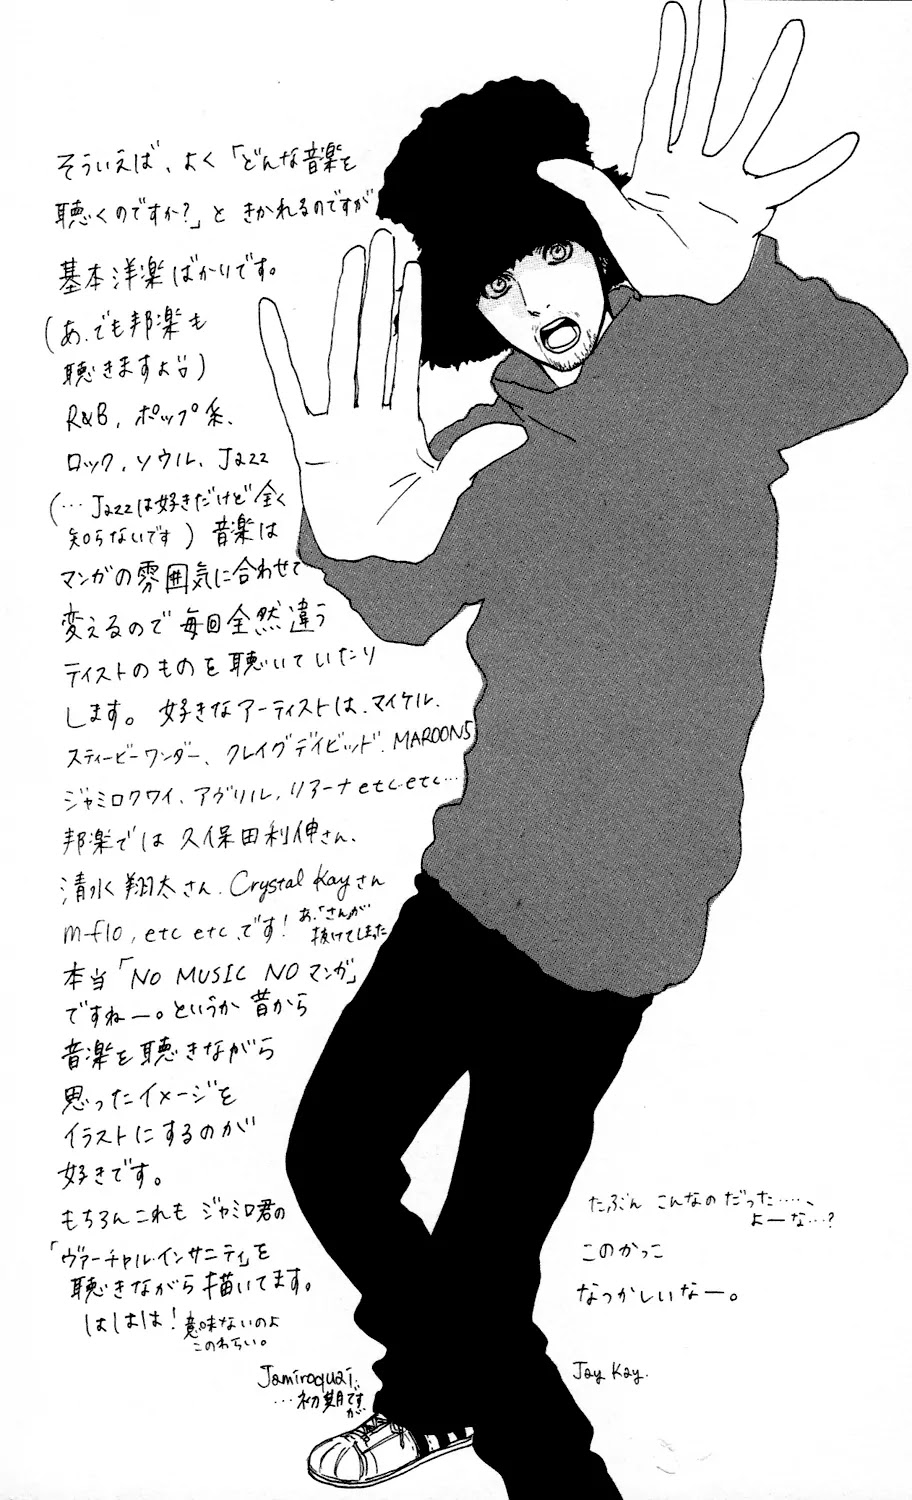 そういえば、よく「どんな音楽を
聴くのですか?」と きかれるのですが
基本洋楽ばかりです。
(あ、でも邦楽も
聴きますよ)
R&B、ポップ系、
ロック、ソウル、Jazz
(…Jazzは好きだけど全く
知らないです) 音楽は
マンガの雰囲気に合わせて
変えるので毎回全然違う
テイストのものを聴いていたり
します。好きなアーティストは、マイケル、
スティービーワンダー、クレイグデイビッド、MAROON5
ジャミロクワイ、アヴリル、リアーナetc.etc…
邦楽では 久保田利伸さん、
清水翔太さん、Crystal Kayさん
m-flo, etc etc、です! あ、「さん」が
抜けてしまった
本当「NO MUSIC NOマンガ」
ですねー。というか昔から
音楽を聴きながら
思ったイメージを
イラストにするのが
好きです。
もちろんこれも ジャミロ君の
「ヴァーチャル・インサニティ」を
聴きながら描いてます。
ははは! 意味ないのよ
このわらい。
Jamiroquai.
…初期ですが
たぶん こんなのだった….、
よーな…?
このかっこ
なつかしいなー。
Jay Kay.